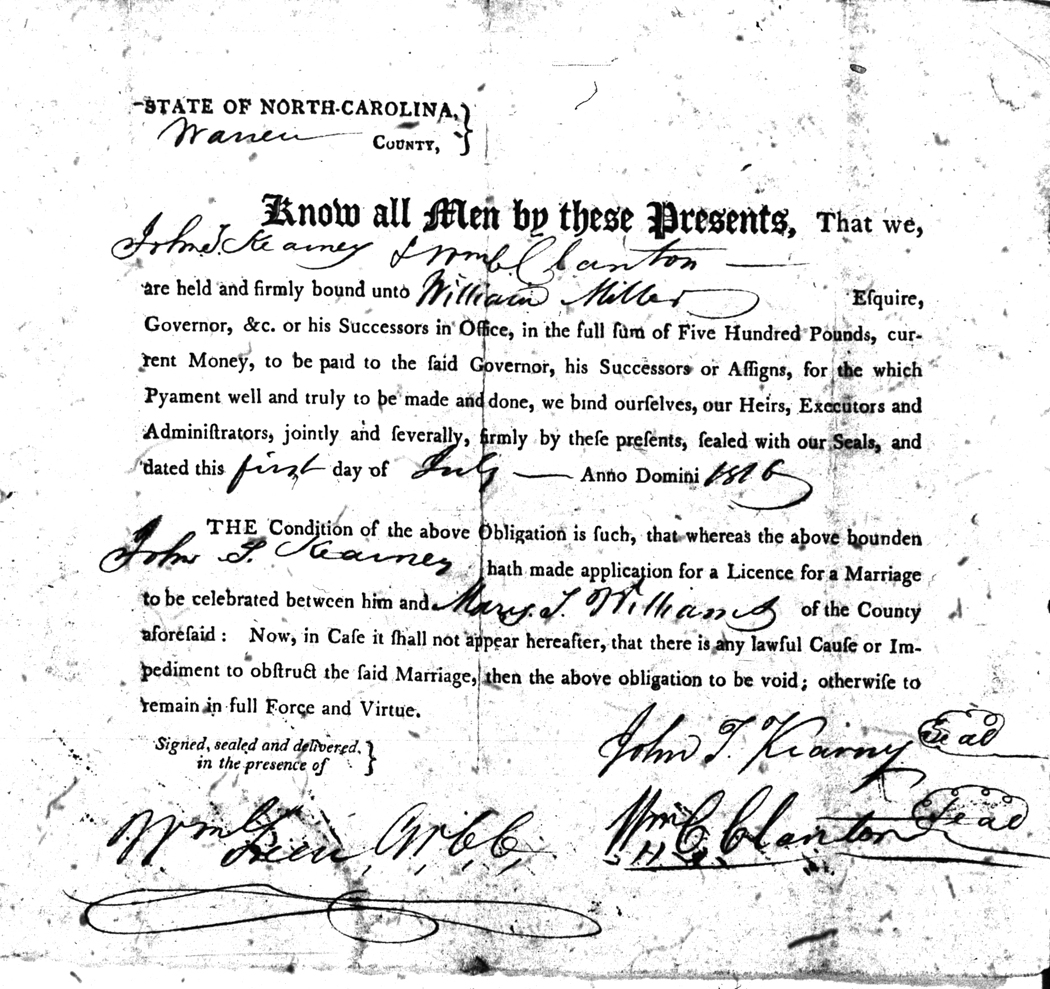 STATE OF NORTH-CAROLINA,
Warren County,
Know all Men by these Presents, That we,
John T. Kearney & Wm C Clanton
are held and firmly bound unto William Miller Eſquire,
Governor, &c. or his Succeſſors in Office, in the full ſum of Five Hundred Pounds, cur-
rent Money, to be paid to the ſaid Governor, his Succeſſors or Aſſigns, for the which
Pyament well and truly to be made and done, we bind ourſelves, our Heirs, Executors and
Adminiſtrators, jointly and ſeverally, firmly by theſe preſents, ſealed with our Seals, and
dated this first day of July Anno Domini 1816
THE Condition of the above Obligation is ſuch, that whereas the above bounden
John T. Kearney hath made application for a Licence for a Marriage
to be celebrated between him and Mary. T. Williams of the County
aforeſaid: Now, in Caſe it ſhall not appear hereafter, that there is any lawful Cauſe or Im-
pediment to obſtruct the ſaid Marriage, then the above obligation to be void; otherwiſe to
remain in full Force and Virtue.
Signed, sealed and delivered,
in the presence of
John T. Kearny Seal
Wm C Clanton Seal
Wm Green,